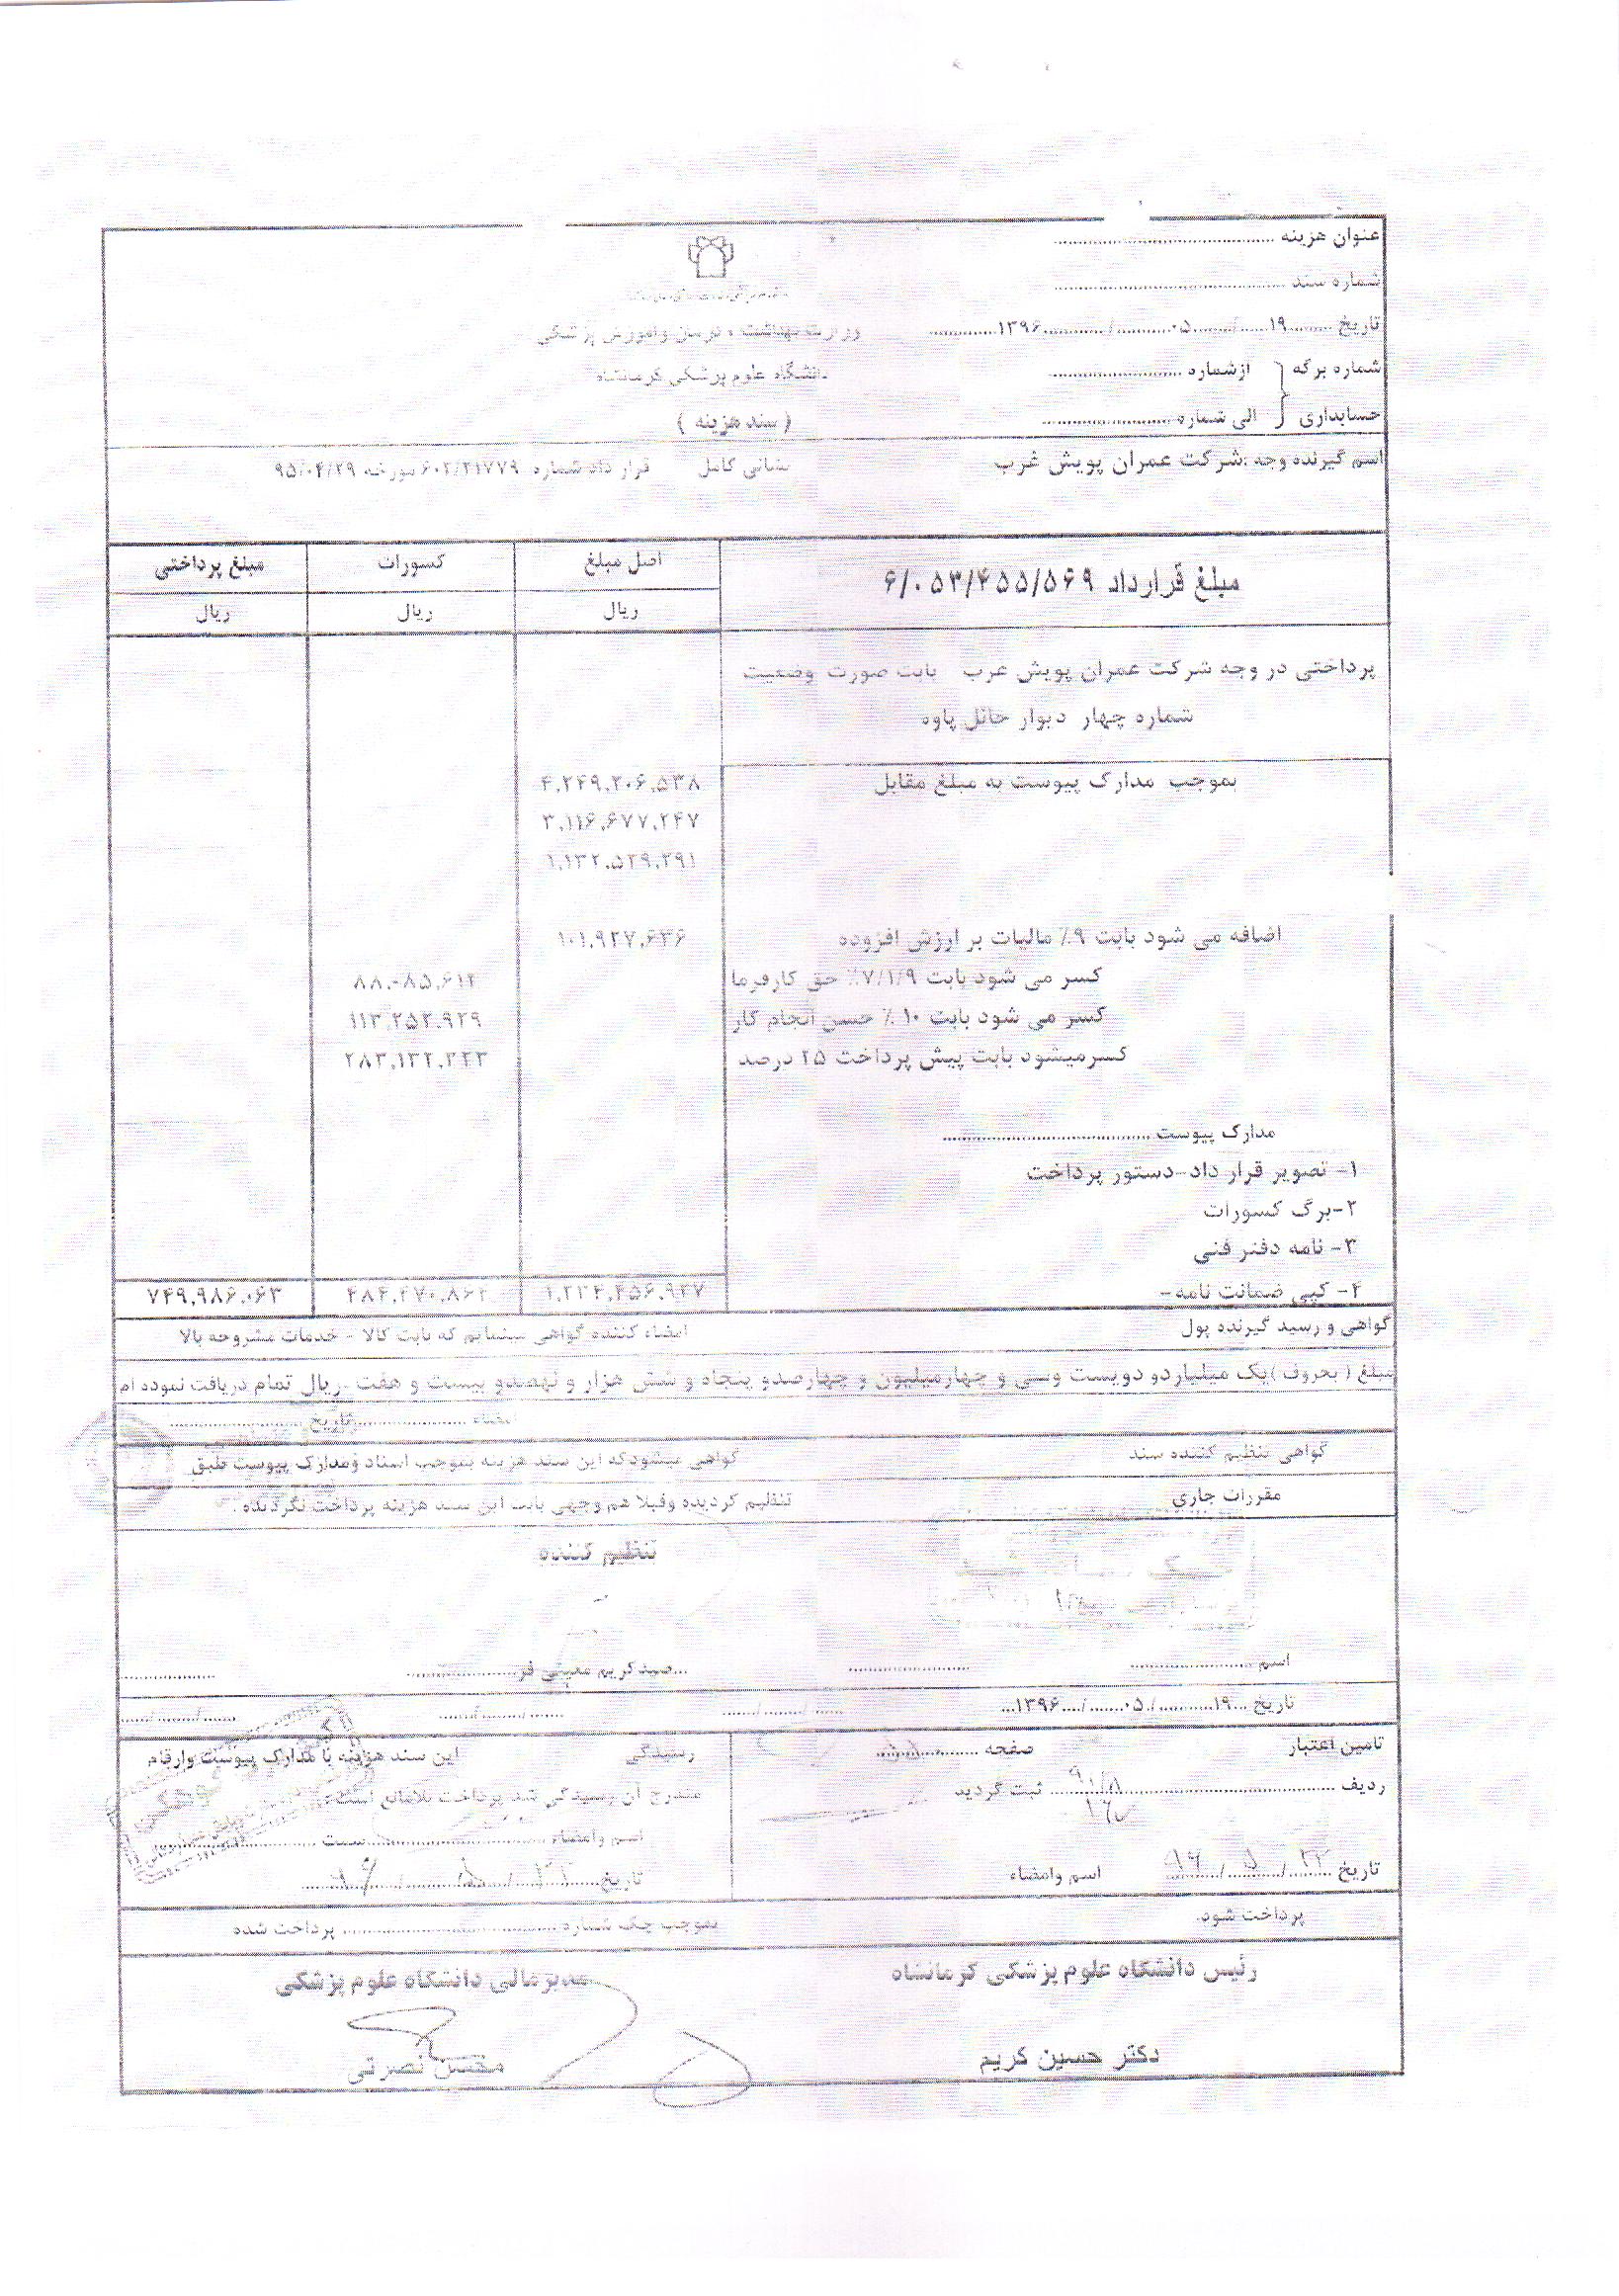 عنوان هزینه ........................
شماره سند ........................
تاریخ .........۱۹....../........۰۵........../............۱۳۹۶............
وزارت بهداشت ، درمان و آموزش پزشکی
شماره برگه { ازشماره ........................
دانشگاه علوم پزشکی کرمانشاه
حسابداری { الی شماره ........................
( سند هزینه )
اسم گیرنده وجه :شرکت عمران پویش غرب نشانی کامل قرار داد شماره ۶۰۲/۲۱۷۷۹ مورخه ۹۵/۰۴/۲۹
مبلغ قرارداد ۶/۰۵۳/۴۵۵/۵۶۹ اصل مبلغ کسورات مبلغ پرداختی
ریال ریال ریال
پرداختی در وجه شرکت عمران پویش غرب بابت صورت وضعیت
شماره چهار دیوار حائل پاوه
بموجب مدارک پیوست به مبلغ مقابل ۴,۲۴۹,۲۰۶,۵۳۸
۳,۱۱۶,۶۷۷,۲۴۷
۱,۱۳۲,۵۲۹,۲۹۱
اضافه می شود بابت ۹٪ مالیات بر ارزش افزوده ۱۰۱,۹۲۷,۶۳۶
کسر می شود بابت ۷/۱/۹٪ حق کارفرما ۸۸,۰۸۵,۶۱۲
کسر می شود بابت ۱۰ ٪ حسن انجام کار ۱۱۳,۲۵۲,۹۲۹
کسرمیشود بابت پیش پرداخت ۲۵ درصد ۲۸۳,۱۳۲,۳۲۳
مدارک پیوست ........................
۱- تصویر قرار داد-دستور پرداخت
۲-برگ کسورات
۳- نامه دفتر فنی
۴- کپی ضمانت نامه- ۱,۲۳۴,۴۵۶,۹۲۷ ۴۸۴,۴۷۰,۸۶۴ ۷۴۹,۹۸۶,۰۶۳
گواهی و رسید گیرنده پول امضاء کننده گواهی مینمایم که بابت کالا - خدمات مشروحه بالا
مبلغ ( بحروف )یک میلیاردو دویست وسی و چهارمیلیون و چهارصدو پنجاه و شش هزار و نهصدو بیست و هفت ریال تمام دریافت نموده ام
امضاء ........................تاریخ ........................
گواهی تنظیم کننده سند گواهی میشودکه این سند هزینه بموجب اسناد ومدارک پیوست طبق
مقررات جاری تنظیم گردیده وقبلا هم وجهی بابت این سند هزینه پرداخت نگردیده .
تنظیم کننده
اسم ........................ ...صیدکریم معینی فر...
تاریخ ...۱۹.........../.۰۵......./....۱۳۹۶...
تامین اعتبار صفحه ................ رسیدگی این سند هزینه با مدارک پیوست وارقام
ردیف ........................ ثبت گردید مندرج آن رسیدگی شد پرداخت بلامانع است .
اسم وامضاء ........................سمت ................
تاریخ ..۲۲../..۵../..۹۶.. اسم وامضاء تاریخ......../......../........
پرداخت شود. بموجب چک شماره ........................ پرداخت شده
رئیس دانشگاه علوم پزشکی کرمانشاه مدیرمالی دانشگاه علوم پزشکی
دکتر حسین کریم محسن نصرتی